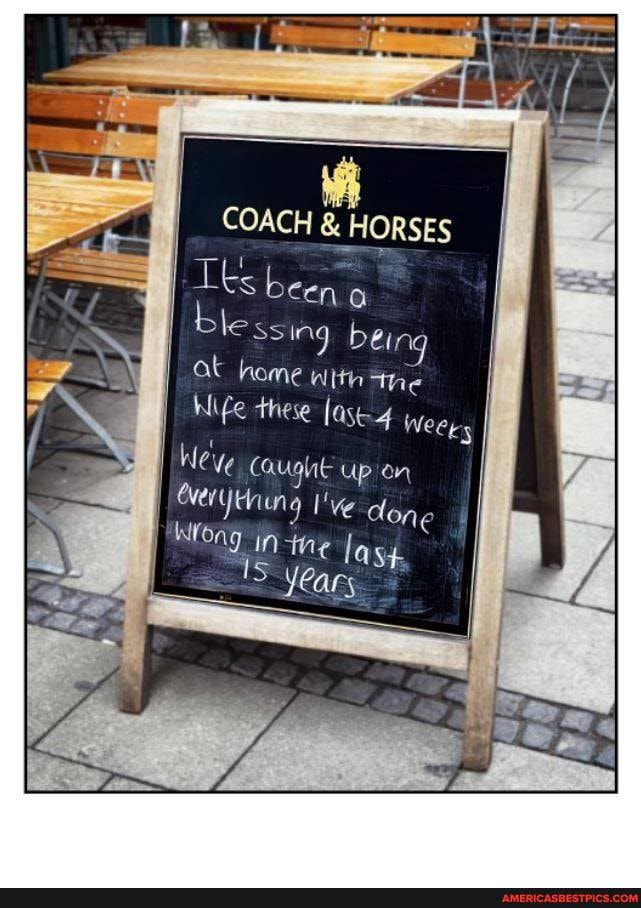 COACH & HORSES
It's been a
blessing being
at home with the
Wife these last 4 weeks
We've caught up on
everything I've done
wrong in the last
15 years
AMERICASBESTPICS.COM